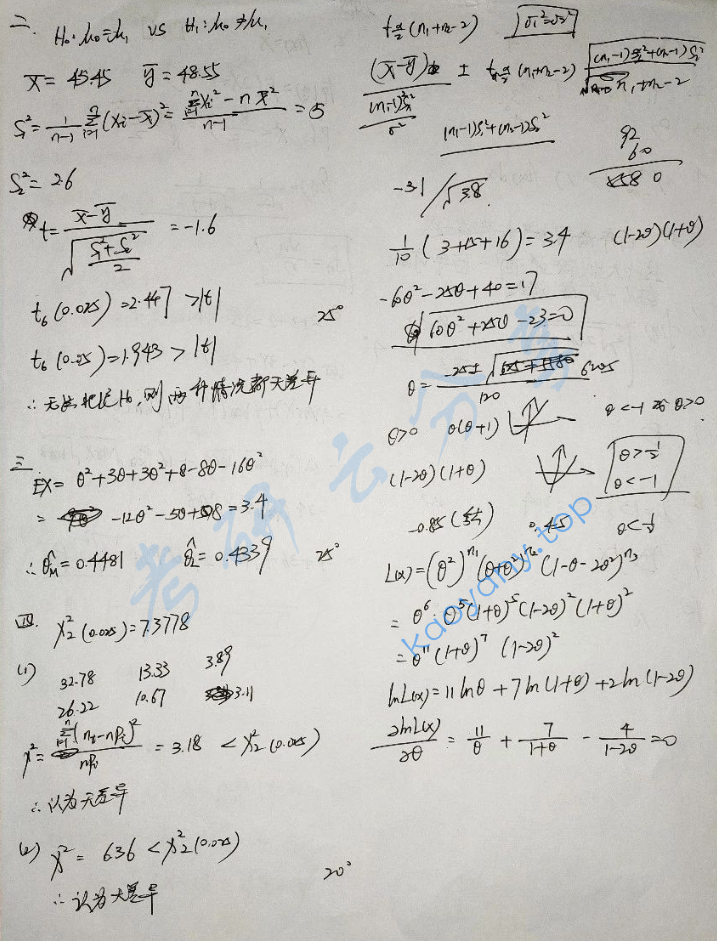 二. H₀: μ₀=μ₁ VS H₁: μ₀≠μ₁
x̄ = 45.45 ȳ = 48.55
S₁² = 1/(n-1) Σᵢ₌₁ⁿ (xᵢ-x̄)² = (Σᵢ₌₁ⁿ xᵢ² - n x̄²)/(n-1) = 5
S₂² = 2.6
t = (x̄-ȳ)/√((S₁²+S₂²)/2) = -1.6
t₆(0.025)=2.447 >|t|
25'
t₆(0.05)=1.943 > |t|
∴ 无法拒绝H₀, 则两种情况都无差异
三. EX = θ²+3θ+3θ²+8-8θ-16θ²
= -12θ²-5θ+8=3.4
∴ θ̂_M = 0.4481 θ̂_L = 0.4339 25'
四. χ₂²(0.025)=7.3778
(1) 32.78 13.33 3.89
26.22 10.67 3.11
χ² = Σᵢ₌₁ⁿ(nᵢ-npᵢ)²/npᵢ = 3.18 < χ₂²(0.025)
∴ 认为无差异
(2) χ² = 6.36 < χ₂²(0.025)
20'
∴ 认为无差异
t_{α/2}(n₁+n₂-2) σ₁²=σ₂²
(x̄-ȳ) ± t_{α/2}(n₁+n₂-2) √((n₁-1)S₁²+(n₂-1)S₂²)/√(n₁+n₂-2)
(n₁-1)S₁²
σ²
(n₁-1)S₁²+(n₂-1)S₂²
92
60
580
-3.1/√3.8
1/10 (3+15+16)=3.4 (1-2θ)(1+θ)
-60θ²-25θ+40=17
60θ²+25θ-23=0
θ = (-25±√6205)/120
θ>0 θ(θ+1) θ<-1 或 θ>0
(1-2θ)(1+θ) θ>½
θ<-1
-0.85 (舍) 0.45 θ<½
L(x)=(θ²)^{n₁}(θ+θ²)^{n₂}(1-θ-2θ²)^{n₃}
= θ⁶·θ⁵(1+θ)⁵(1-2θ)²(1+θ)²
= θ¹¹(1+θ)⁷ (1-2θ)²
lnL(x)=11lnθ+7ln(1+θ)+2ln(1-2θ)
∂lnL(x)/∂θ = 11/θ + 7/(1+θ) - 4/(1-2θ) = 0
考研云分享
kaoyany.top